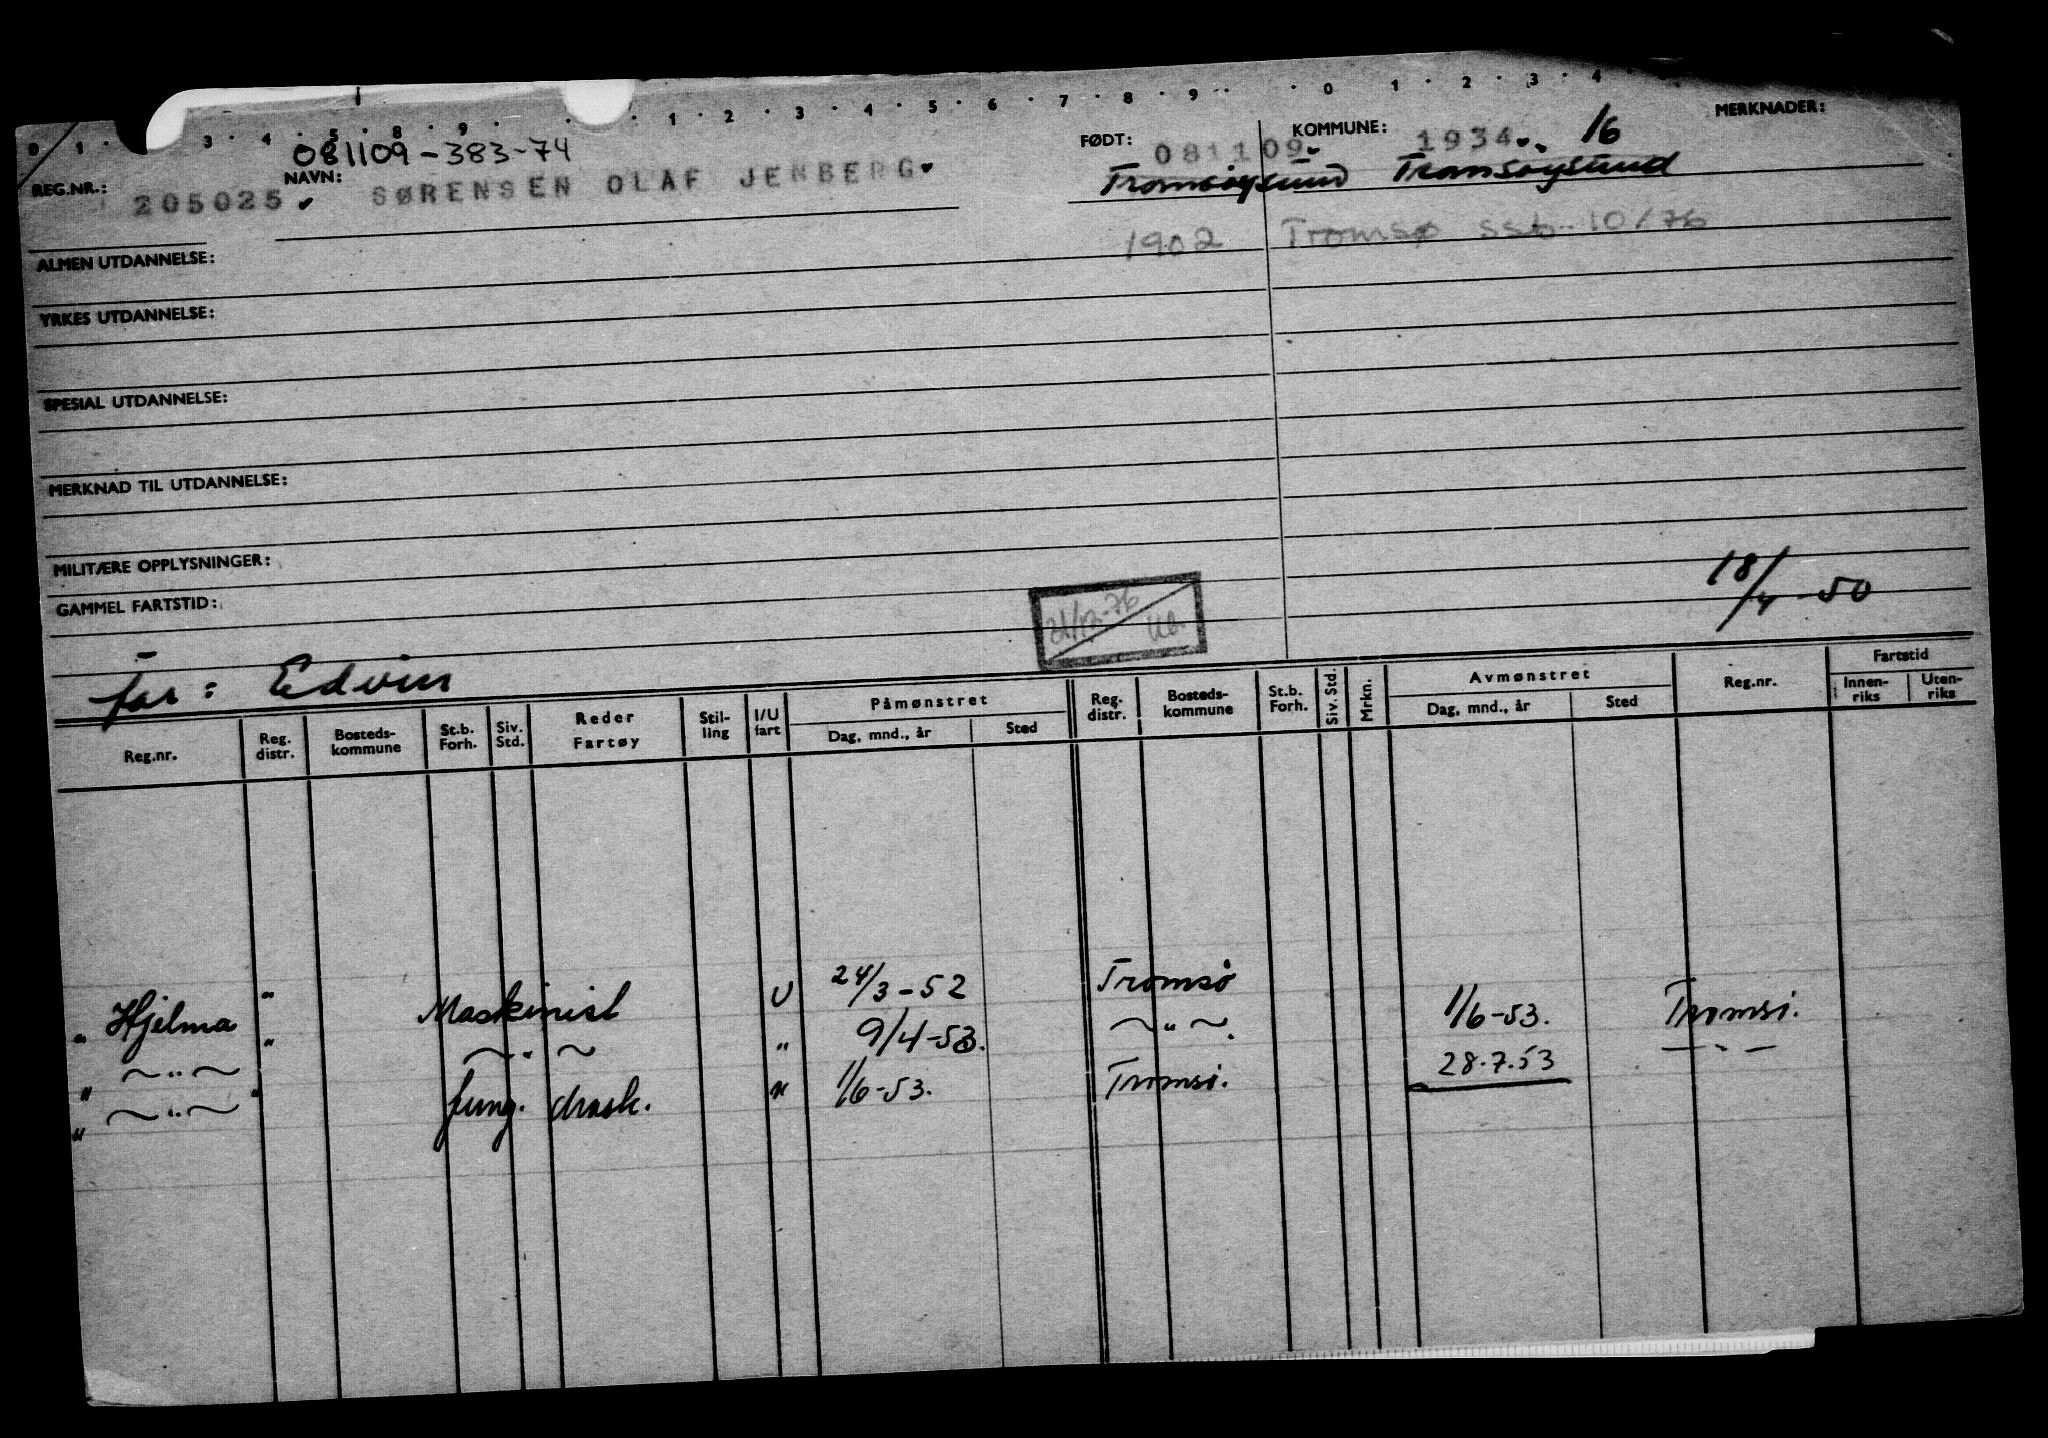 0 1 · 3 · 4 · 5 · 8 · 9 · · 1 · 2 · 3 · 4 · 5 · 6 · 7 · 8 · 9 · · 0 1 · 2 · 3 · 4 ·
081109-383-74
REG.NR.: 205025 NAVN: SØRENSEN OLAF JENBERG
FØDT: 081109 KOMMUNE: 1934 16 MERKNADER:
Tromsøysund Tromsøysund
1902 Tromsø ssb-10/76
ALMEN UTDANNELSE:
YRKES UTDANNELSE:
SPESIAL UTDANNELSE:
MERKNAD TIL UTDANNELSE:
MILITÆRE OPPLYSNINGER:
GAMMEL FARTSTID:
18/4-50
far: Edvin
Reg.nr. Reg. distr. Bosteds-kommune St.b. Forh. Siv. Std. Reder Fartøy Stil-ling I/U fart Påmønstret Dag, mnd., år Sted Reg. distr. Bosteds-kommune St.b. Forh. Siv. Std. Mrkn. Avmønstret Dag, mnd., år Sted Reg.nr. Fartstid Innen-riks Uten-riks
" Hjelma " Maskinist U 24/3-52 Tromsø 1/6-53. Tromsø.
" ~"~ " ~"~ " 9/4-53. ~"~. 28.7.53 —"—
" ~"~ " fung. mask. " 1/6-53. Tromsø.